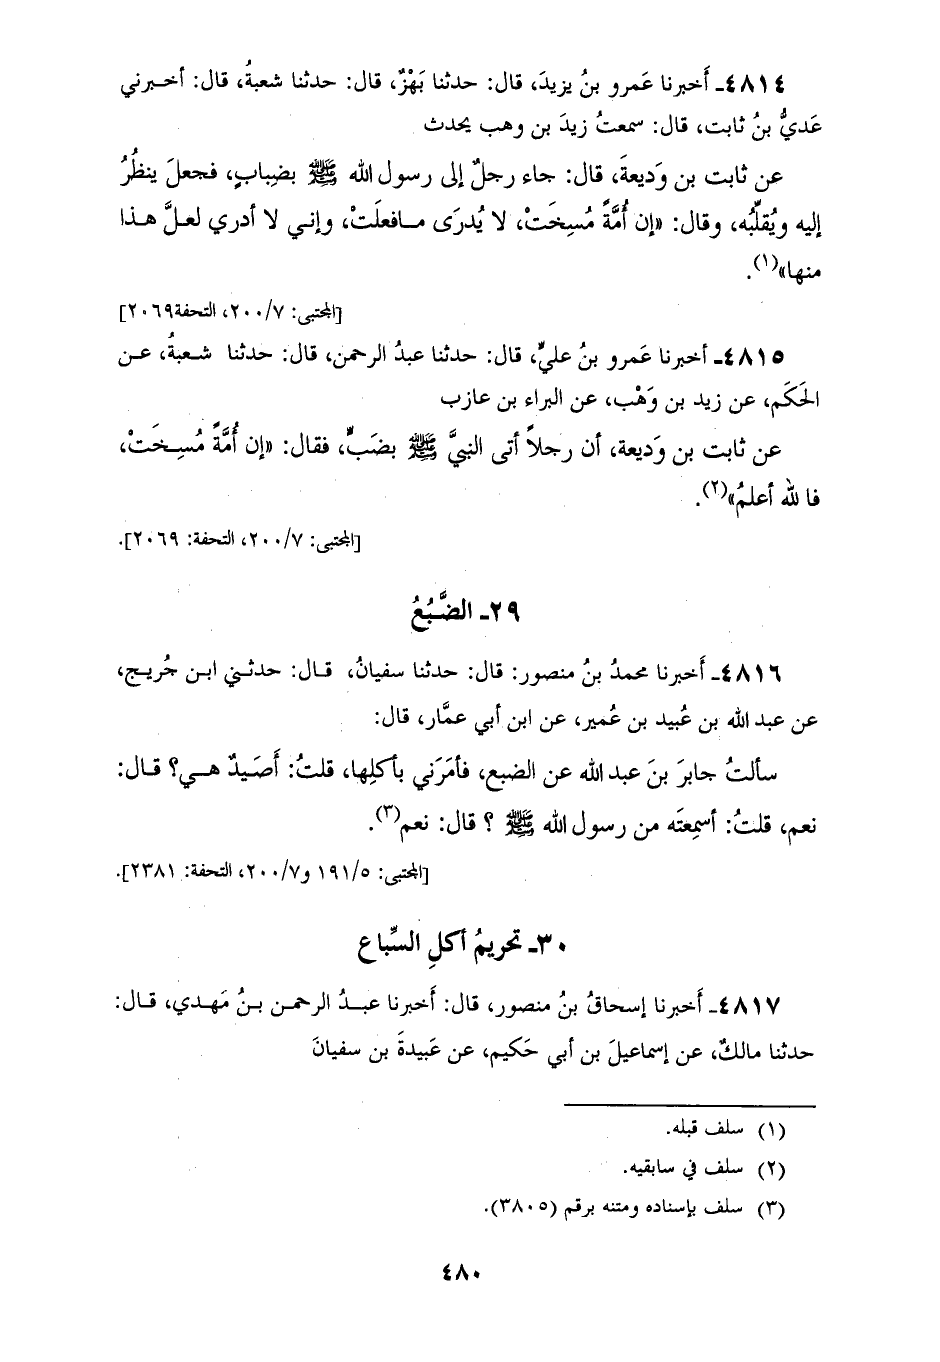 ٤٨١٤ـ أَخبرنا عَمرو بنُ يزيدَ، قال: حدثنا بَهْزٌ، قال: حدثنا شعبةُ، قال: أخـبرني
عَديُّ بنُ ثابت، قال: سمعتُ زيدَ بن وهب يحدث
عن ثابت بن وَديعةَ، قال: جاء رجلٌ إلى رسول الله ﷺ بضِبابٍ، فجعلَ ينظُرُ
إليه ويُقلِّبُه، وقال: «إن أُمَّةً مُسِخَتْ، لا يُدرَى مـافعلَتْ، وإني لا أدري لعلَّ هـذا
منها»(١).
[المجتبى: ٢٠٠/٧، التحفة٢٠٦٩]
٤٨١٥ـ أخبرنا عَمرو بنُ عليٍّ، قال: حدثنا عبدُ الرحمن، قال: حدثنا شـعبةُ، عـن
الحَكَم، عن زيد بن وَهْب، عن البراء بن عازب
عن ثابت بن وَديعة، أن رجلاً أتى النبيَّ ﷺ بضَبٍّ، فقال: «إن أُمَّةً مُسِـخَتْ،
فا لله أعلمُ»(٢).
[المجتبى: ٢٠٠/٧، التحفة: ٢٠٦٩].
٢٩ـ الضَّبُعُ
٤٨١٦ـ أَخبرنا محمدُ بنُ منصور: قال: حدثنا سفيانُ، قـال: حدثـني ابـن جُريـج،
عن عبد الله بن عُبيد بن عُمير، عن ابن أبي عمَّار، قال:
سألتُ جابرَ بنَ عبد الله عن الضبع، فأمَرَني بأكلِها، قلتُ: أَصَيدٌ هـي؟ قـال:
نعم، قلتُ: أسمِعتَه من رسول الله ﷺ ؟ قال: نعم(٣).
[المجتبى: ١٩١/٥ و٢٠٠/٧، التحفة: ٢٣٨١].
٣٠ـ تحريمُ أكلِ السِّباع
٤٨١٧ـ أَخبرنا إسحاقُ بنُ منصور، قال: أَخبرنا عبـدُ الرحمـن بـنُ مَهـدي، قـال:
حدثنا مالكٌ، عن إسماعيلَ بن أبي حَكيم، عن عَبيدةَ بن سفيانَ
(١) سلف قبله.
(٢) سلف في سابقيه.
(٣) سلف بإسناده ومتنه برقم (٣٨٠٥).
٤٨٠